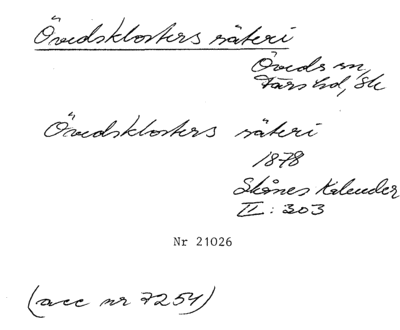 Övedsklosters säteri
Öveds sn,
Färs hd, Sk
Övedsklosters säteri
1878
Skånes Kalender
II: 303
Nr 21026
(acc nr 7254)